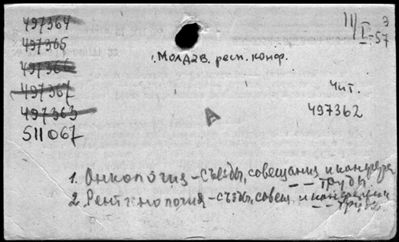 497364
497365
497366
497367
497363
511067
II/I-57
3
1. Молдав. респ. конф.
Чит.
497362
А
1. Онкология - съезды, совещания и конференции
-- -- труды.
2. Рентгенология - съезды, совещ. и конференции
-- -- труды